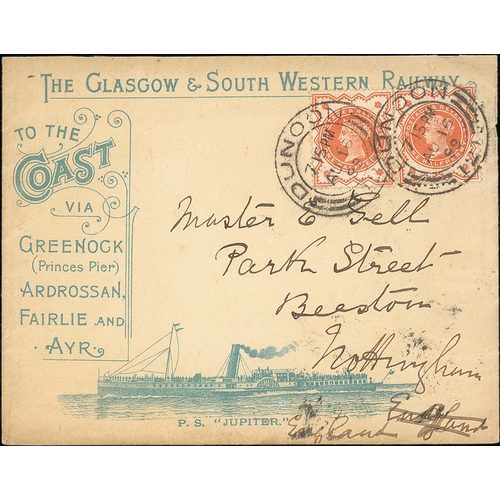 THE GLASGOW & SOUTH WESTERN RAILWAY
TO THE
COAST
VIA
GREENOCK
(Princes Pier)
ARDROSSAN,
FAIRLIE AND
AYR.
DUNOON
7 15 PM
AU 15
DUNOON
7 15 PM
AU 15
Master E Gell
Park Street
Beeston
Nottingham
England
P. S. "JUPITER."